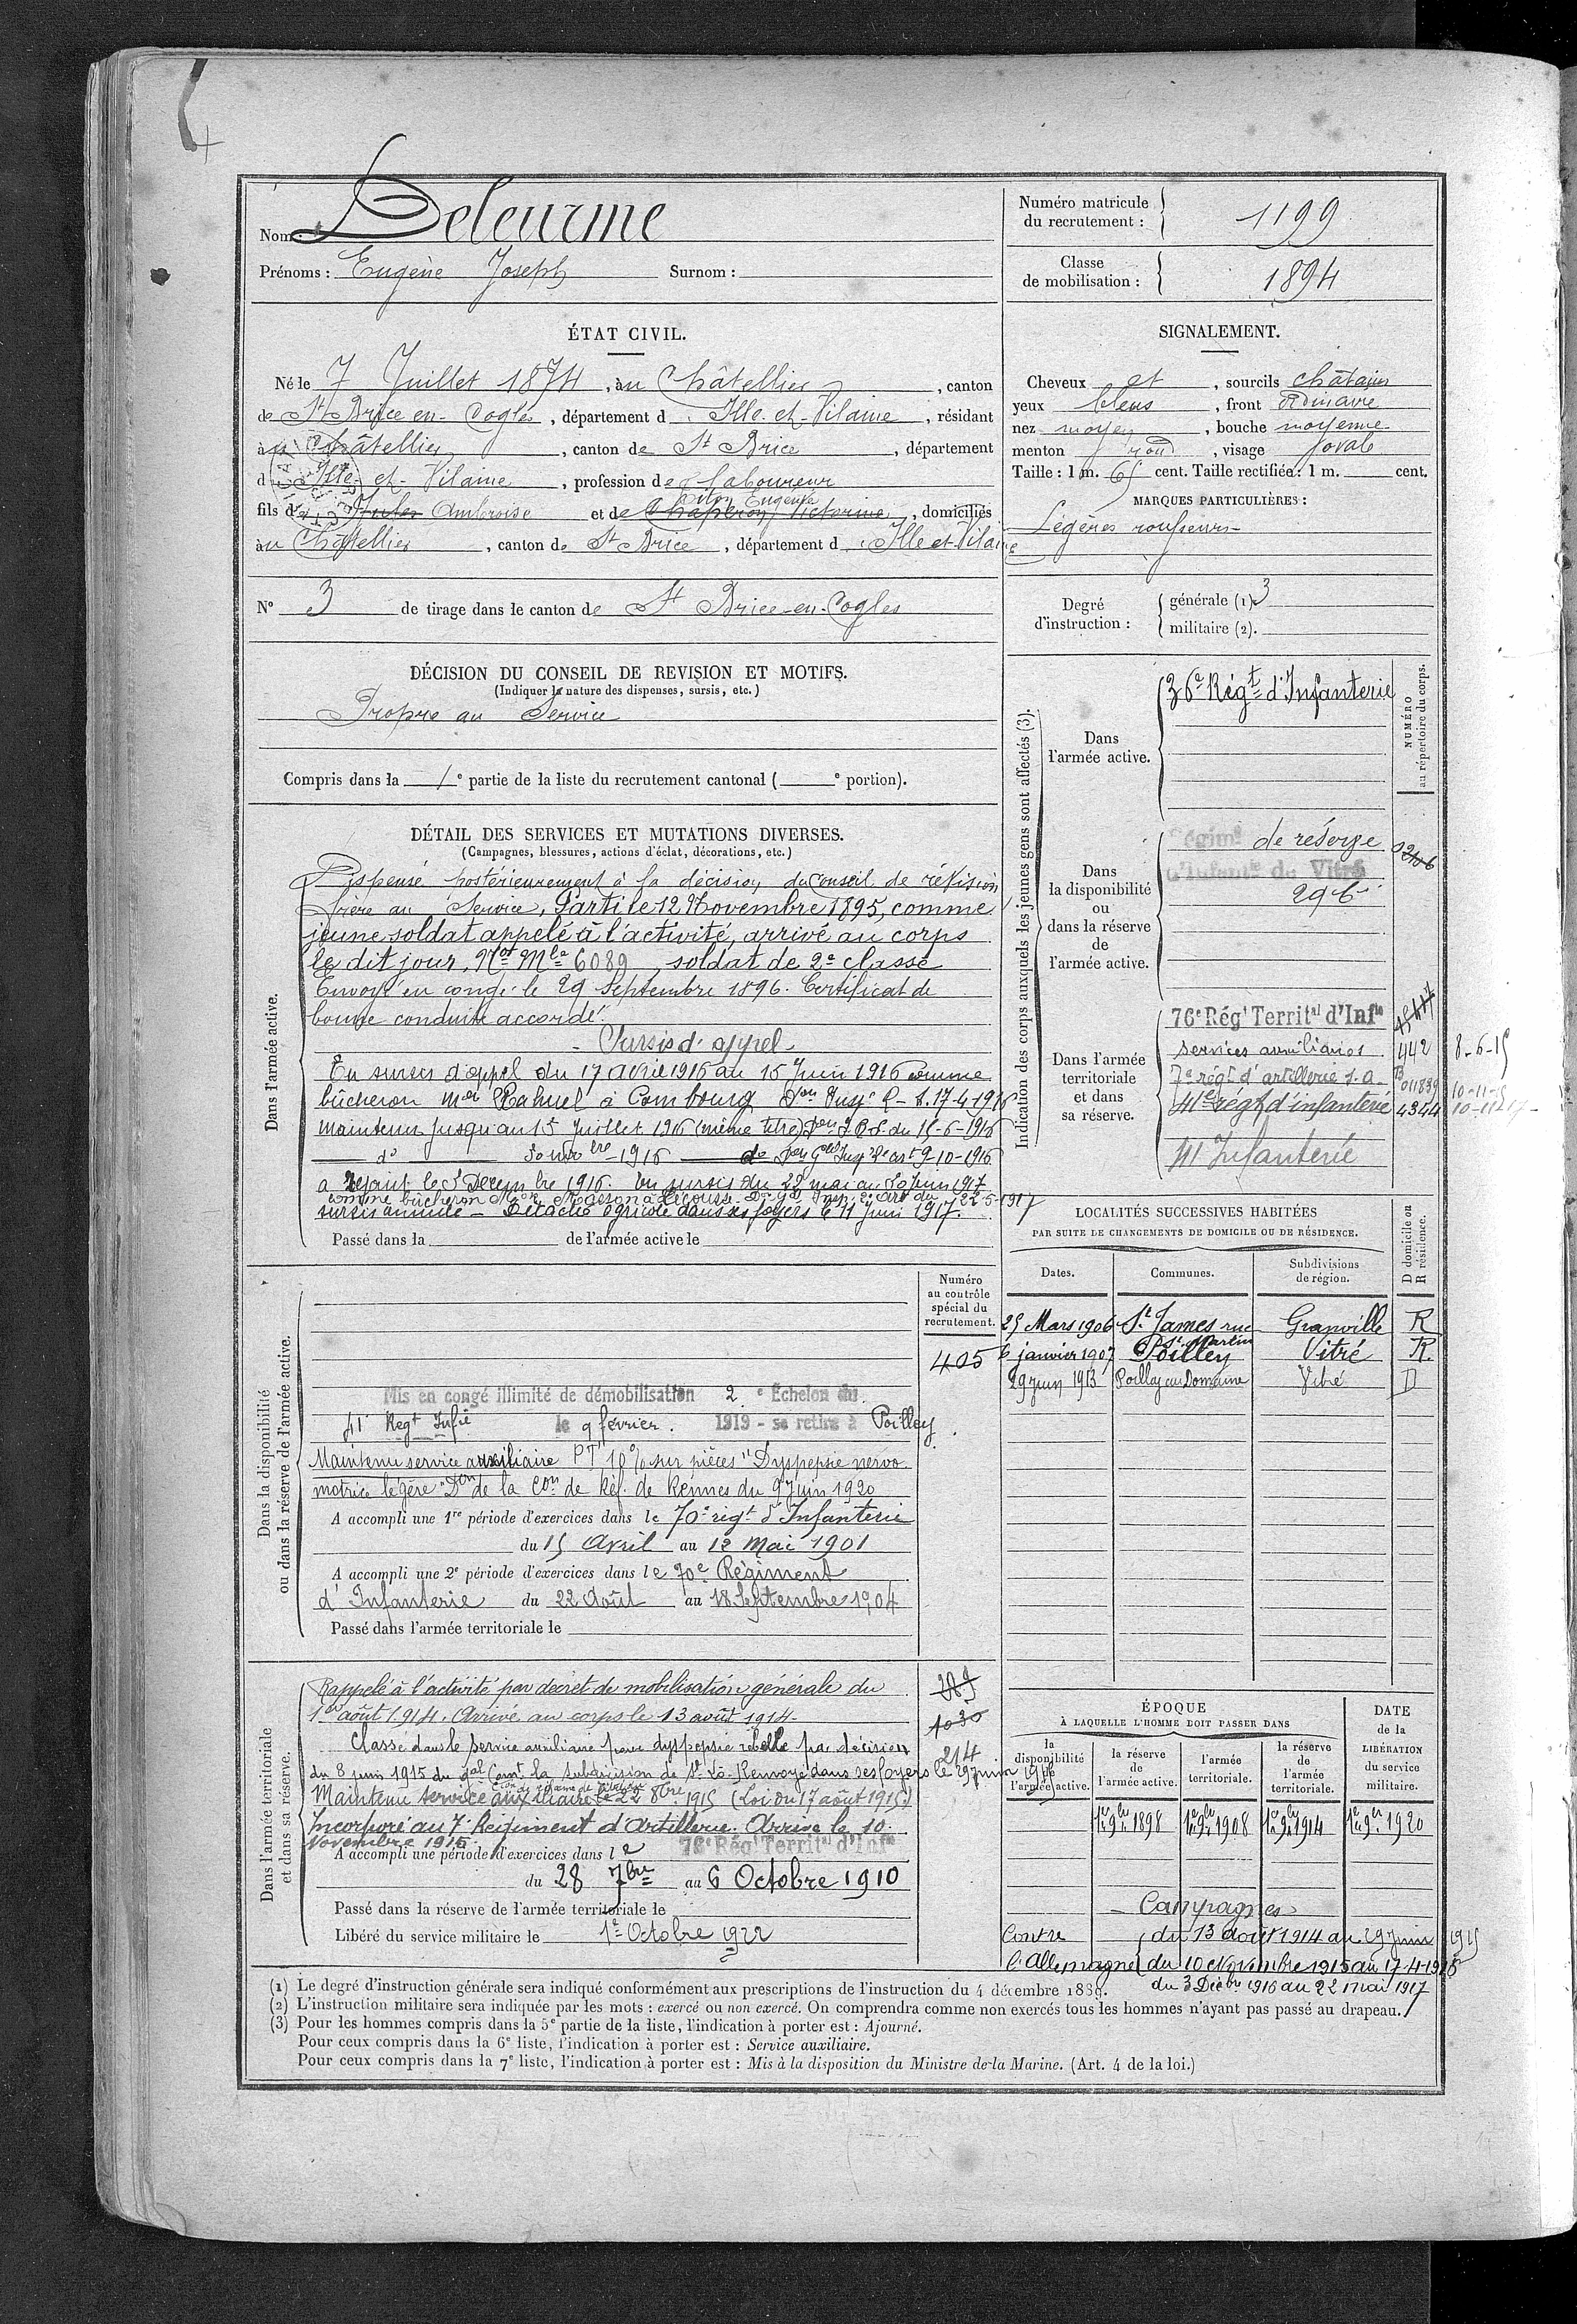 Nom : Deleurme
Prénoms : Eugène Joseph Surnom :
Numéro matricule du recrutement : 1199
Classe de mobilisation : 1894
ÉTAT CIVIL.
Né le 7 Juillet 1874, au Châtellier, canton
de St Brice en-Cogles, département d'Ille-et-Vilaine, résidant
au Châtellier, canton de St Brice, département
d'Ille-et-Vilaine, profession de laboureur
fils de Jules Ambroise et de Chaperon Victorine Eugénie, domiciliés
au Châtellier, canton de St Brice, département d'Ille et-Vilaine
N° 3 de tirage dans le canton de St Brice-en-Cogles
SIGNALEMENT.
Cheveux et, sourcils châtains
yeux bleus, front ordinaire
nez moyen, bouche moyenne
menton rond, visage ovale
Taille : 1 m. 65 cent. Taille rectifiée : 1 m. cent.
MARQUES PARTICULIÈRES :
Légères rousseurs
Degré d'instruction : générale (1). 3
militaire (2).
DÉCISION DU CONSEIL DE REVISION ET MOTIFS.
(Indiquer la nature des dispenses, sursis, etc.)
Propre au Service
Compris dans la 1e partie de la liste du recrutement cantonal ( e portion).
DÉTAIL DES SERVICES ET MUTATIONS DIVERSES.
(Campagnes, blessures, actions d'éclat, décorations, etc.)
Dans l'armée active.
Dispensé postérieurement à la décision du Conseil de révision
frère au Service, Parti le 12 Novembre 1895, comme
jeune soldat appelé à l'activité, arrivé au corps
le dit jour, Not Mle 6089, soldat de 2e classe
Envoyé en congé le 29 Septembre 1896. Certificat de
bonne conduite accordé.
Sursis d'appel
En sursis d'appel du 17 avril 1916 au 15 Juin 1916 comme
bûcheron Mon Rahuel à Combourg 17-4-1916
Maintenu jusqu'au 15 Juillet 1916 (même titre) du 15-6-1916
do 1916 9-10-1916
a rejoint le 3 Décembre 1916. En sursis du 22 mai au 20 Juin 1917
comme bûcheron Mon à Lécousse du 22-5-1917
sursis annulé - Détaché agricole dans ses foyers le 11 Juin 1917.
Passé dans la de l'armée active le
Indication des corps auxquels les jeunes gens sont affectés (3).
NUMÉRO au répertoire du corps.
Dans l'armée active.
36e Régt d'Infanterie
Dans la disponibilité ou dans la réserve de l'armée active.
Régimt de réserve
d'Infante de Vitré
296
Dans l'armée territoriale et dans sa réserve.
76e Régt Territal d'Infie
services auxiliaires 442 8-6-15
7e régt d'artillerie s.a. 011839 10-11-15
41e régt d'infanterie 4344
41 Infanterie
LOCALITÉS SUCCESSIVES HABITÉES
PAR SUITE DE CHANGEMENTS DE DOMICILE OU DE RÉSIDENCE.
Dates. Communes. Subdivisions de région. D domicile ou R résidence.
25 Mars 1906 St James rue St Martin Granville R
6 janvier 1907 Poilley Vitré R.
29 juin 1913 Poilley au Domaine Vitré D
Dans la disponibilité ou dans la réserve de l'armée active.
Numéro au contrôle spécial du recrutement.
405
Mis en congé illimité de démobilisation 2e Échelon du
41 Regt Infie le 9 février 1919 - se retire à Poilley
Maintenu service auxiliaire PT 10% sur pièces "Dyspepsie nervo
motrice légère" Don de la Con de Réf. de Rennes du 9 Juin 1920
A accompli une 1re période d'exercices dans le 70e régt d'Infanterie
du 15 Avril au 12 Mai 1901
A accompli une 2e période d'exercices dans le 70e Régiment
d'Infanterie du 22 Août au 18 Septembre 1904
Passé dans l'armée territoriale le
Dans l'armée territoriale et dans sa réserve.
Rappelé à l'activité par décret de mobilisation générale du
1er août 1914. Arrivé au corps le 13 août 1914
Classé dans le service auxiliaire pour dyspepsie rebelle par décision
du 8 juin 1915 du Gal Comt la Subdivision de St Lô. Renvoyé dans ses foyers le 29 juin 1915
Maintenu service auxiliaire le 22 8bre 1915 (Loi du 17 août 1915)
Incorporé au 7e Régiment d'Artillerie. Arrivé le 10
Novembre 1915.
1030
214
A accompli une période d'exercices dans le 76e Régt Territal d'Infie
du 28 7bre au 6 Octobre 1910
Passé dans la réserve de l'armée territoriale le
Libéré du service militaire le 1er Octobre 1922
ÉPOQUE
À LAQUELLE L'HOMME DOIT PASSER DANS
la disponibilité de l'armée active. la réserve de l'armée active. l'armée territoriale. la réserve de l'armée territoriale.
DATE de la LIBÉRATION du service militaire.
1er 9bre 1898 1er 9bre 1908 1er 9bre 1914 1er 9bre 1920
Campagnes
Contre l'Allemagne du 13 août 1914 au 29 juin 1915
du 10 Novembre 1915 au 17-4-1916
du 3 Décbre 1916 au 22 mai 1917
(1) Le degré d'instruction générale sera indiqué conformément aux prescriptions de l'instruction du 4 décembre 1889.
(2) L'instruction militaire sera indiquée par les mots : exercé ou non exercé. On comprendra comme non exercés tous les hommes n'ayant pas passé au drapeau.
(3) Pour les hommes compris dans la 5e partie de la liste, l'indication à porter est : Ajourné.
Pour ceux compris dans la 6e liste, l'indication à porter est : Service auxiliaire.
Pour ceux compris dans la 7e liste, l'indication à porter est : Mis à la disposition du Ministre de la Marine. (Art. 4 de la loi.)